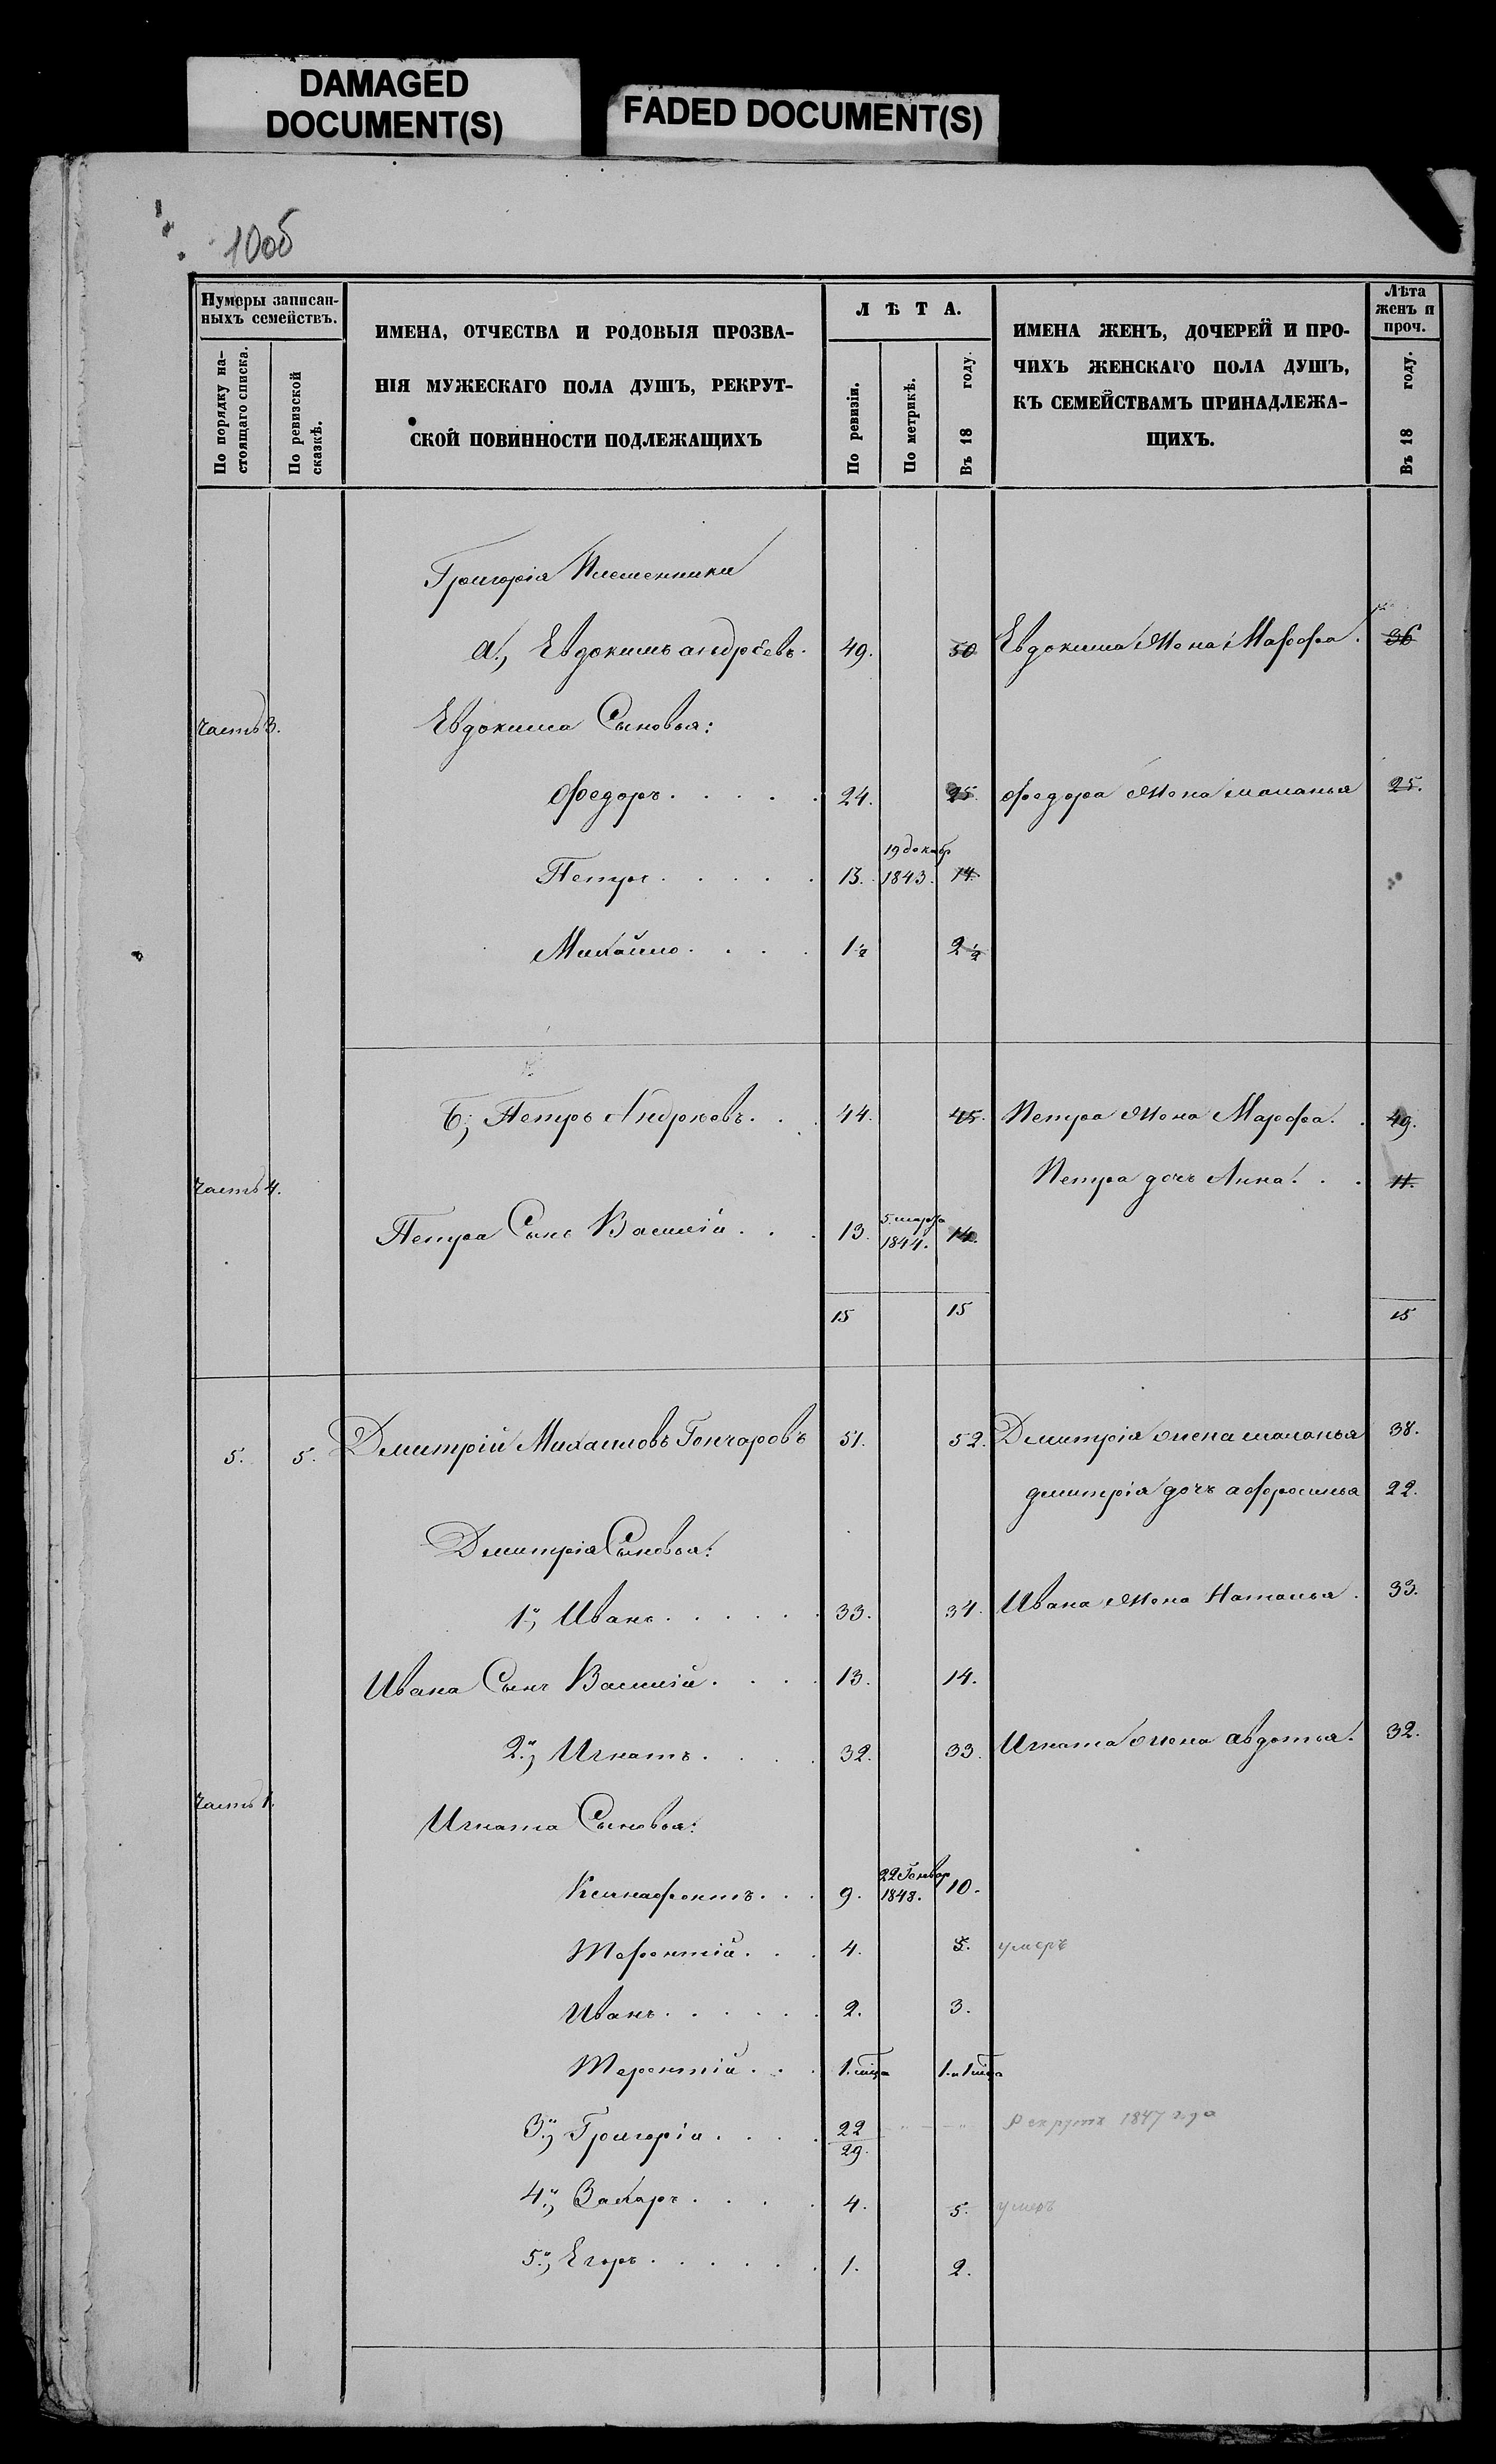 DAMAGED
DOCUMENT(S)
FADED DOCUMENT(S)
10об
Нумеры записан-
ныхъ семействъ.
По порядку на-
стоящаго списка.
По ревизской
сказкѣ.
ИМЕНА, ОТЧЕСТВА И РОДОВЫЯ ПРОЗВА-
НІЯ МУЖЕСКАГО ПОЛА ДУШЪ, РЕКРУТ-
СКОЙ ПОВИННОСТИ ПОДЛЕЖАЩИХЪ
Л Ѣ Т А.
По ревизіи.
По метрикѣ.
Въ 18 году.
ИМЕНА ЖЕНЪ, ДОЧЕРЕЙ И ПРО-
ЧИХЪ ЖЕНСКАГО ПОЛА ДУШЪ,
КЪ СЕМЕЙСТВАМЪ ПРИНАДЛЕЖА-
ЩИХЪ.
Лѣта
женъ и
проч.
Въ 18 году.
Григорія Племенники
а., Евдокимъ андреевъ. 49. 50 Евдокима Жена Марфа. 36
Часть 3. Евдокима Сыновья:
Федоръ. . . . . 24. 25. Федора Жена маланья 25.
19 декабр
Петръ. . . . . 13. 1843. 14.
Михайло. . . . 1½ 2½
Б; Петръ Андреевъ. . . 44. 45. Петра Жена Марфа. . 49.
Часть 4. Петра дочь Анна. . . 11.
5 марта
Петра Сынъ Василій. . . 13. 1844. 14.
15 15 15
5. 5. Дмитрій Михаиловъ Гончаровъ 51. 52. Дмитрія жена маланья 38.
дмитрія дочь афросинья 22.
Дмитрія Сыновья:
1й, Иванъ. . . . . 33. 34. Ивана Жена Наталья. 33.
Ивана Сынъ Василій. . . . 13. 14.
2й, Игнатъ. . . . 32. 33. Игната жена авдотья. 32.
Часть 1. Игната Сыновья:
22 Генвар
Ксинафонтъ. . . 9. 1848. 10.
Терентій. . . . 4. 5. умеръ
Иванъ. . . . . . 2. 3.
Терентій. . . 1. мѣца 1. и 1 мѣца
3й, Григорій. . . . 22 Рекрутъ 1847 года
29.
4й, Захаръ. . . . 4. 5. умеръ
5й, Егоръ. . . . . . 1. 2.